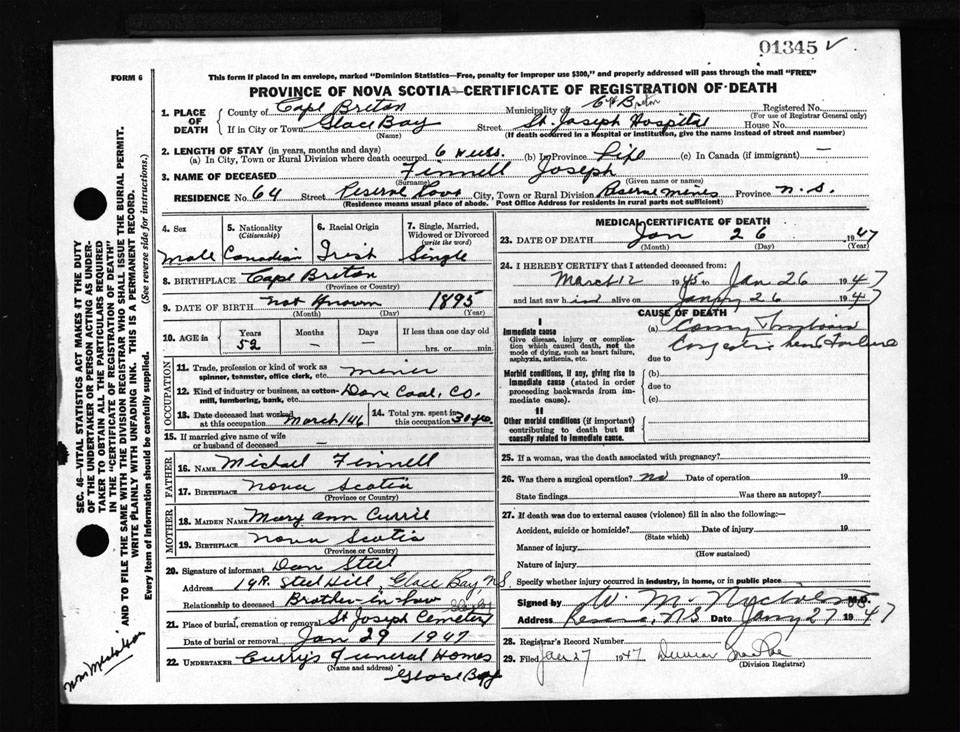 01345 V
FORM 6
This form if placed in an envelope, marked "Dominion Statistics—Free, penalty for improper use $300," and properly addressed will pass through the mail "FREE"
PROVINCE OF NOVA SCOTIA—CERTIFICATE OF REGISTRATION OF DEATH
1. PLACE OF DEATH County of Cape Breton Municipality of C Breton Registered No. (For use of Registrar General only)
If in City or Town Glace Bay (Name) Street St. Joseph Hospital House No.
(If death occurred in a Hospital or institution, give the name instead of street and number)
2. LENGTH OF STAY (in years, months and days)
(a) In City, Town or Rural Division where death occurred 6 (b) In Province Life (c) In Canada (if immigrant) —
3. NAME OF DECEASED Finnell (Surname) Joseph (Given name or names)
RESIDENCE No. 64 Street Reserve Rows City, Town or Rural Division Reserve Mines Province N. S.
(Residence means usual place of abode. Post Office Address for residents in rural parts not sufficient)
4. Sex Male
5. Nationality (Citizenship) Canadian
6. Racial Origin Irish
7. Single, Married, Widowed or Divorced (write the word) Single
8. BIRTHPLACE Cape Breton
(Province or Country)
9. DATE OF BIRTH not Known 1895
(Month) (Day) (Year)
10. AGE in Years 52 Months — Days — If less than one day old hrs. or min.
OCCUPATION
11. Trade, profession or kind of work as spinner, teamster, office clerk, etc. miner
12. Kind of industry or business, as cotton-mill, lumbering, bank, etc. Dom Coal, Co.
13. Date deceased last worked at this occupation March/46
14. Total yrs. spent in this occupation 30 yrs.
15. If married give name of wife or husband of deceased —
FATHER
16. NAME Michael Finnell
17. BIRTHPLACE Nova Scotia
(Province or Country)
MOTHER
18. MAIDEN NAME Mary Ann Currie
19. BIRTHPLACE Nova Scotia
(Province or Country)
20. Signature of informant Dan Steel
Address 19R. Steel Hill, Glace Bay, N.S.
Relationship to deceased Brother-in-law
21. Place of burial, cremation or removal St Joseph Cemetery
Date of burial or removal Jan 29 1947
22. UNDERTAKER Curry's Funeral Homes
(Name and address)
Glace Bay
MEDICAL CERTIFICATE OF DEATH
23. DATE OF DEATH Jan 26 1947
(Month) (Day) (Year)
24. I HEREBY CERTIFY that I attended deceased from:
March 12 1945 to Jan 26 1947
and last saw him alive on Jany 26 1947
CAUSE OF DEATH
I
Immediate cause
Give disease, injury or complication which caused death, not the mode of dying, such as heart failure, asphyxia, asthenia, etc.
(a)
Congestive heart Failure
due to
Morbid conditions, if any, giving rise to immediate cause (stated in order proceeding backwards from immediate cause).
(b)
due to
(c)
II
Other morbid conditions (if important) contributing to death but not causally related to immediate cause.
25. If a woman, was the death associated with pregnancy?
26. Was there a surgical operation? no Date of operation 19
State findings Was there an autopsy?
27. If death was due to external causes (violence) fill in also the following:—
Accident, suicide or homicide? Date of injury 19
(State which)
Manner of injury
(How sustained)
Nature of injury
Specify whether injury occurred in industry, in home, or in public place
Signed by W. M. Nicholson M.D.
Address Reserve, N.S Date Jany 27 1947
28. Registrar's Record Number
29. Filed Jan 27 1947
(Division Registrar)
SEC. 46—VITAL STATISTICS ACT MAKES IT THE DUTY
OF THE UNDERTAKER OR PERSON ACTING AS UNDER-
TAKER TO OBTAIN ALL THE PARTICULARS REQUIRED
IN THE "CERTIFICATE OF REGISTRATION OF DEATH"
AND TO FILE THE SAME WITH THE DIVISION REGISTRAR WHO SHALL ISSUE THE BURIAL PERMIT.
WRITE PLAINLY WITH UNFADING INK. THIS IS A PERMANENT RECORD.
Every item of information should be carefully supplied. (See reverse side for instructions.)